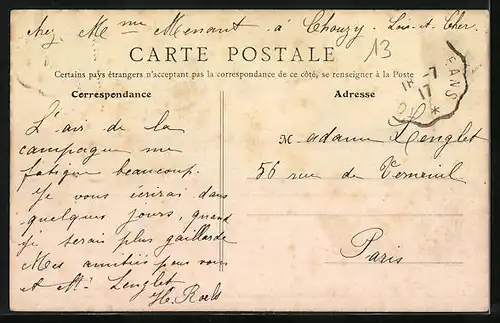 chez Mme Menant à Chouzy. Loir-et-Cher.
CARTE POSTALE
13
Certains pays étrangers n'acceptant pas la correspondance de ce côté, se renseigner à la Poste
Correspondance
L'air de la
campagne me
fatigue beaucoup.
Je vous écrirai dans
quelques jours, quand
je serais plus gaillarde
Mes amitiés pour vous
et Mr Lenglet
H. Roels
Adresse
EANS
18 -7
17
*
Madame Lenglet
56 rue de Verneuil
Paris